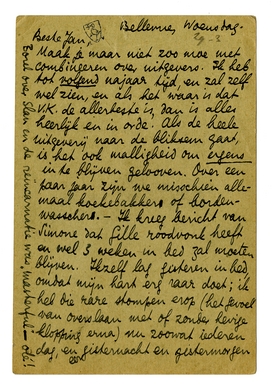 Bellevue, Woensdag -
Beste Jan,
Maak je maar niet zoo moe met
combineeren over uitgevers. Ik heb
tot volgend najaar tijd, en zal zelf
wel zien, en als het waar is dat
V.K. de allerbeste is, dan is alles
heerlijk en in orde. Als de heele
uitgeverij naar de bliksem gaat,
is het ook malligheid om ergens
in te blijven gelooven. Over een
paar jaar zijn we misschien alle-
maal koekebakkers of borden-
wasschers. - Ik kreeg bericht van
Simone dat Gille roodvonk heeft
en wel 3 weken in bed zal moeten
blijven. Ikzelf lag gisteren in bed,
omdat mijn hart erg raar doet; ik
heb die rare stompen erop (het gevoel
van overslaan met of zonder hevige
klopping erna) nu zoowat iederen
dag, en gisternacht en gistermorgen
Boek over Slau en de reincarnatie was